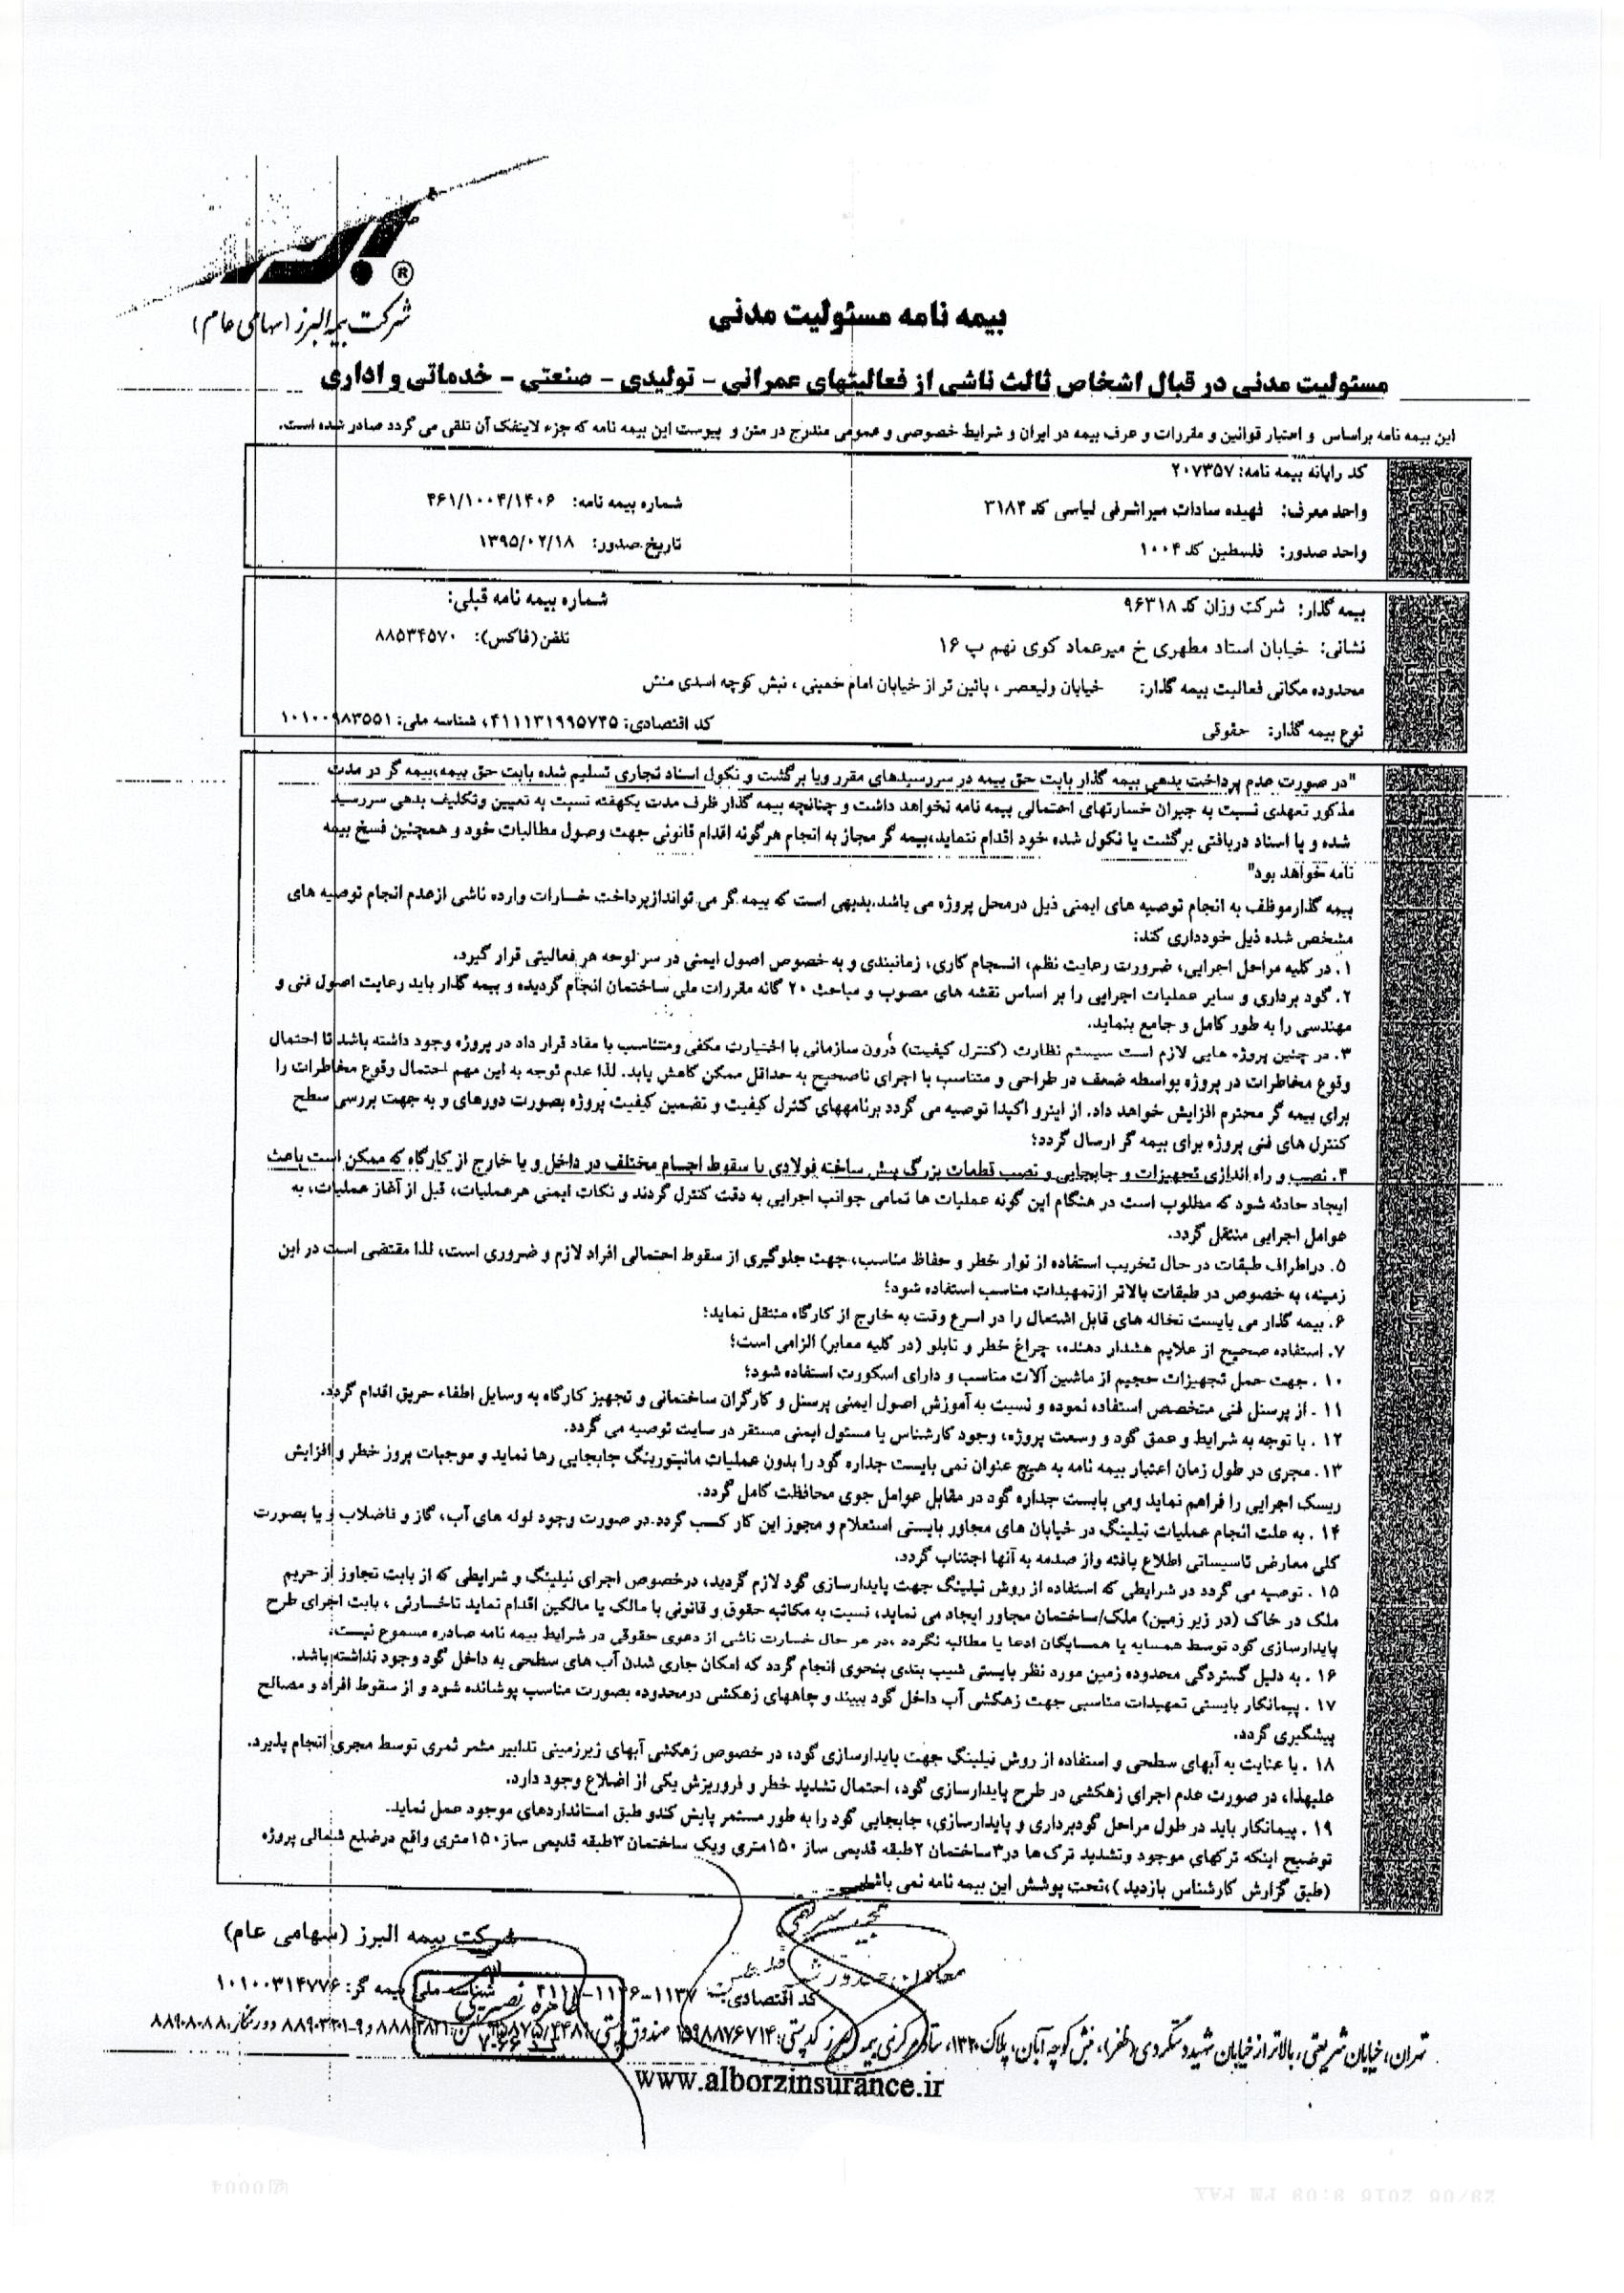 شرکت بیمه البرز (سهامی عام)
بیمه نامه مسئولیت مدنی
مسئولیت مدنی در قبال اشخاص ثالث ناشی از فعالیتهای عمرانی - تولیدی - صنعتی - خدماتی و اداری
این بیمه نامه براساس و اعتبار قوانین و مقررات و عرف بیمه در ایران و شرایط خصوصی و عمومی مندرج در متن و پیوست این بیمه نامه که جزء لاینفک آن تلقی می گردد صادر شده است.
کد رایانه بیمه نامه: ۲۰۷۳۵۷
واحد معرف: فهیده سادات میراشرفی لیاسی کد ۳۱۸۴ شماره بیمه نامه: ۴۶۱/۱۰۰۴/۱۴۰۶
واحد صدور: فلسطین کد ۱۰۰۴ تاریخ صدور: ۱۳۹۵/۰۲/۱۸
بیمه گذار: شرکت وزان کد ۹۶۳۱۸ شماره بیمه نامه قبلی:
نشانی: خیابان استاد مطهری خ میرعماد کوی نهم پ ۱۶ تلفن(فاکس): ۸۸۵۳۴۵۷۰
محدوده مکانی فعالیت بیمه گذار: خیابان ولیعصر ، پائین تر از خیابان امام خمینی ، نبش کوچه اسدی منش
نوع بیمه گذار: حقوقی کد اقتصادی: ۴۱۱۱۳۱۹۹۵۷۴۵، شناسه ملی: ۱۰۱۰۰۹۸۳۵۵۱
"در صورت عدم پرداخت بدهی بیمه گذار بابت حق بیمه در سررسیدهای مقرر ویا برگشت و نکول اسناد تجاری تسلیم شده بابت حق بیمه،بیمه گر در مدت
مذکور تعهدی نسبت به جبران خسارتهای احتمالی بیمه نامه نخواهد داشت و چنانچه بیمه گذار ظرف مدت یکهفته نسبت به تعیین وتکلیف بدهی سررسید
شده و یا اسناد دریافتی برگشت یا نکول شده خود اقدام ننماید،بیمه گر مجاز به انجام هرگونه اقدام قانونی جهت وصول مطالبات خود و همچنین فسخ بیمه
نامه خواهد بود"
بیمه گذارموظف به انجام توصیه های ایمنی ذیل درمحل پروژه می باشد.بدیهی است که بیمه گر می تواندازپرداخت خسارات وارده ناشی ازعدم انجام توصیه های
مشخص شده ذیل خودداری کند:
۱. در کلیه مراحل اجرایی، ضرورت رعایت نظم، انسجام کاری، زمانبندی و به خصوص اصول ایمنی در سر لوحه هر فعالیتی قرار گیرد.
۲. گود برداری و سایر عملیات اجرایی را بر اساس نقشه های مصوب و مباحث ۲۰ گانه مقررات ملی ساختمان انجام گردیده و بیمه گذار باید رعایت اصول فنی و
مهندسی را به طور کامل و جامع بنماید.
۳. در چنین پروژه هایی لازم است سیستم نظارت (کنترل کیفیت) درون سازمانی با اختیارت مکفی ومتناسب با مفاد قرار داد در پروژه وجود داشته باشد تا احتمال
وقوع مخاطرات در پروژه بواسطه ضعف در طراحی و متناسب با اجرای ناصحیح به حداقل ممکن کاهش یابد. لذا عدم توجه به این مهم احتمال وقوع مخاطرات را
برای بیمه گر محترم افزایش خواهد داد. از اینرو اکیدا توصیه می گردد برنامههای کنترل کیفیت و تضمین کیفیت پروژه بصورت دورهای و به جهت بررسی سطح
کنترل های فنی پروژه برای بیمه گر ارسال گردد؛
۴. نصب و راه اندازی تجهیزات و جابجایی و نصب قطعات بزرگ پیش ساخته فولادی یا سقوط اجسام مختلف در داخل و یا خارج از کارگاه که ممکن است باعث
ایجاد حادثه شود که مطلوب است در هنگام این گونه عملیات ها تمامی جوانب اجرایی به دقت کنترل گردند و نکات ایمنی هرعملیات، قبل از آغاز عملیات، به
عوامل اجرایی منتقل گردد.
۵. دراطراف طبقات در حال تخریب استفاده از نوار خطر و حفاظ مناسب، جهت جلوگیری از سقوط احتمالی افراد لازم و ضروری است، لذا مقتضی است در این
زمینه، به خصوص در طبقات بالاتر ازتمهیدات مناسب استفاده شود؛
۶. بیمه گذار می بایست نخاله های قابل اشتعال را در اسرع وقت به خارج از کارگاه منتقل نماید؛
۷. استفاده صحیح از علایم هشدار دهنده، چراغ خطر و تابلو (در کلیه معابر) الزامی است؛
۱۰. جهت حمل تجهیزات حجیم از ماشین آلات مناسب و دارای اسکورت استفاده شود؛
۱۱. از پرسنل فنی متخصص استفاده نموده و نسبت به آموزش اصول ایمنی پرسنل و کارگران ساختمانی و تجهیز کارگاه به وسایل اطفاء حریق اقدام گردد.
۱۲. با توجه به شرایط و عمق گود و وسعت پروژه، وجود کارشناس یا مسئول ایمنی مستقر در سایت توصیه می گردد.
۱۳. مجری در طول زمان اعتبار بیمه نامه به هیچ عنوان نمی بایست جداره گود را بدون عملیات مانیتورینگ جابجایی رها نماید و موجبات بروز خطر و افزایش
ریسک اجرایی را فراهم نماید ومی بایست جداره گود در مقابل عوامل جوی محافظت کامل گردد.
۱۴. به علت انجام عملیات نیلینگ در خیابان های مجاور بایستی استعلام و مجوز این کار کسب گردد.در صورت وجود لوله های آب، گاز و فاضلاب و یا بصورت
کلی معارض تاسیساتی اطلاع یافته واز صدمه به آنها اجتناب گردد.
۱۵. توصیه می گردد در شرایطی که استفاده از روش نیلینگ جهت پایدارسازی گود لازم گردید، درخصوص اجرای نیلینگ و شرایطی که از بابت تجاوز از حریم
ملک در خاک (در زیر زمین) ملک/ساختمان مجاور ایجاد می نماید، نسبت به مکاتبه حقوق و قانونی با مالک یا مالکین اقدام نماید تاخسارتی ، بابت اجرای طرح
پایدارسازی گود توسط همسایه یا همسایگان ادعا یا مطالبه نگردد ،در هر حال خسارت ناشی از دعوی حقوقی در شرایط بیمه نامه صادره مسموع نیست؛
۱۶. به دلیل گستردگی محدوده زمین مورد نظر بایستی شیب بندی بنحوی انجام گردد که امکان جاری شدن آب های سطحی به داخل گود وجود نداشته باشد.
۱۷. پیمانکار بایستی تمهیدات مناسبی جهت زهکشی آب داخل گود ببیند و چاههای زهکشی درمحدوده بصورت مناسب پوشانده شود و از سقوط افراد و مصالح
پیشگیری گردد.
۱۸. با عنایت به آبهای سطحی و استفاده از روش نیلینگ جهت پایدارسازی گود، در خصوص زهکشی آبهای زیرزمینی تدابیر مثمر ثمری توسط مجری انجام پذیرد.
علیهذا، در صورت عدم اجرای زهکشی در طرح پایدارسازی گود، احتمال تشدید خطر و فروریزش یکی از اضلاع وجود دارد.
۱۹. پیمانکار باید در طول مراحل گودبرداری و پایدارسازی، جابجایی گود را به طور مستمر پایش کندو طبق استانداردهای موجود عمل نماید.
توضیح اینکه ترکهای موجود وتشدید ترک ها در۳ساختمان ۲طبقه قدیمی ساز ۱۵۰متری ویک ساختمان ۳طبقه قدیمی ساز۱۵۰متری واقع درضلع شمالی پروژه
(طبق گزارش کارشناس بازدید )،تحت پوشش این بیمه نامه نمی باشد.
شرکت بیمه البرز (سهامی عام)
کد اقتصادی شناسه ملی بیمه گر: ۱۰۱۰۰۳۱۴۷۷۶
تهران، خیابان شریعتی، بالاتر از خیابان شهید دستگردی (ظفر)، نبش کوچه آبان، پلاک ۱۳۳۰، ستاد مرکزی بیمه البرز کدپستی: ۱۵۹۸۸۷۶۷۱۴ صندوق پستی: دورنگار: ۸۸۹۰۸۰۸۸
www.alborzinsurance.ir